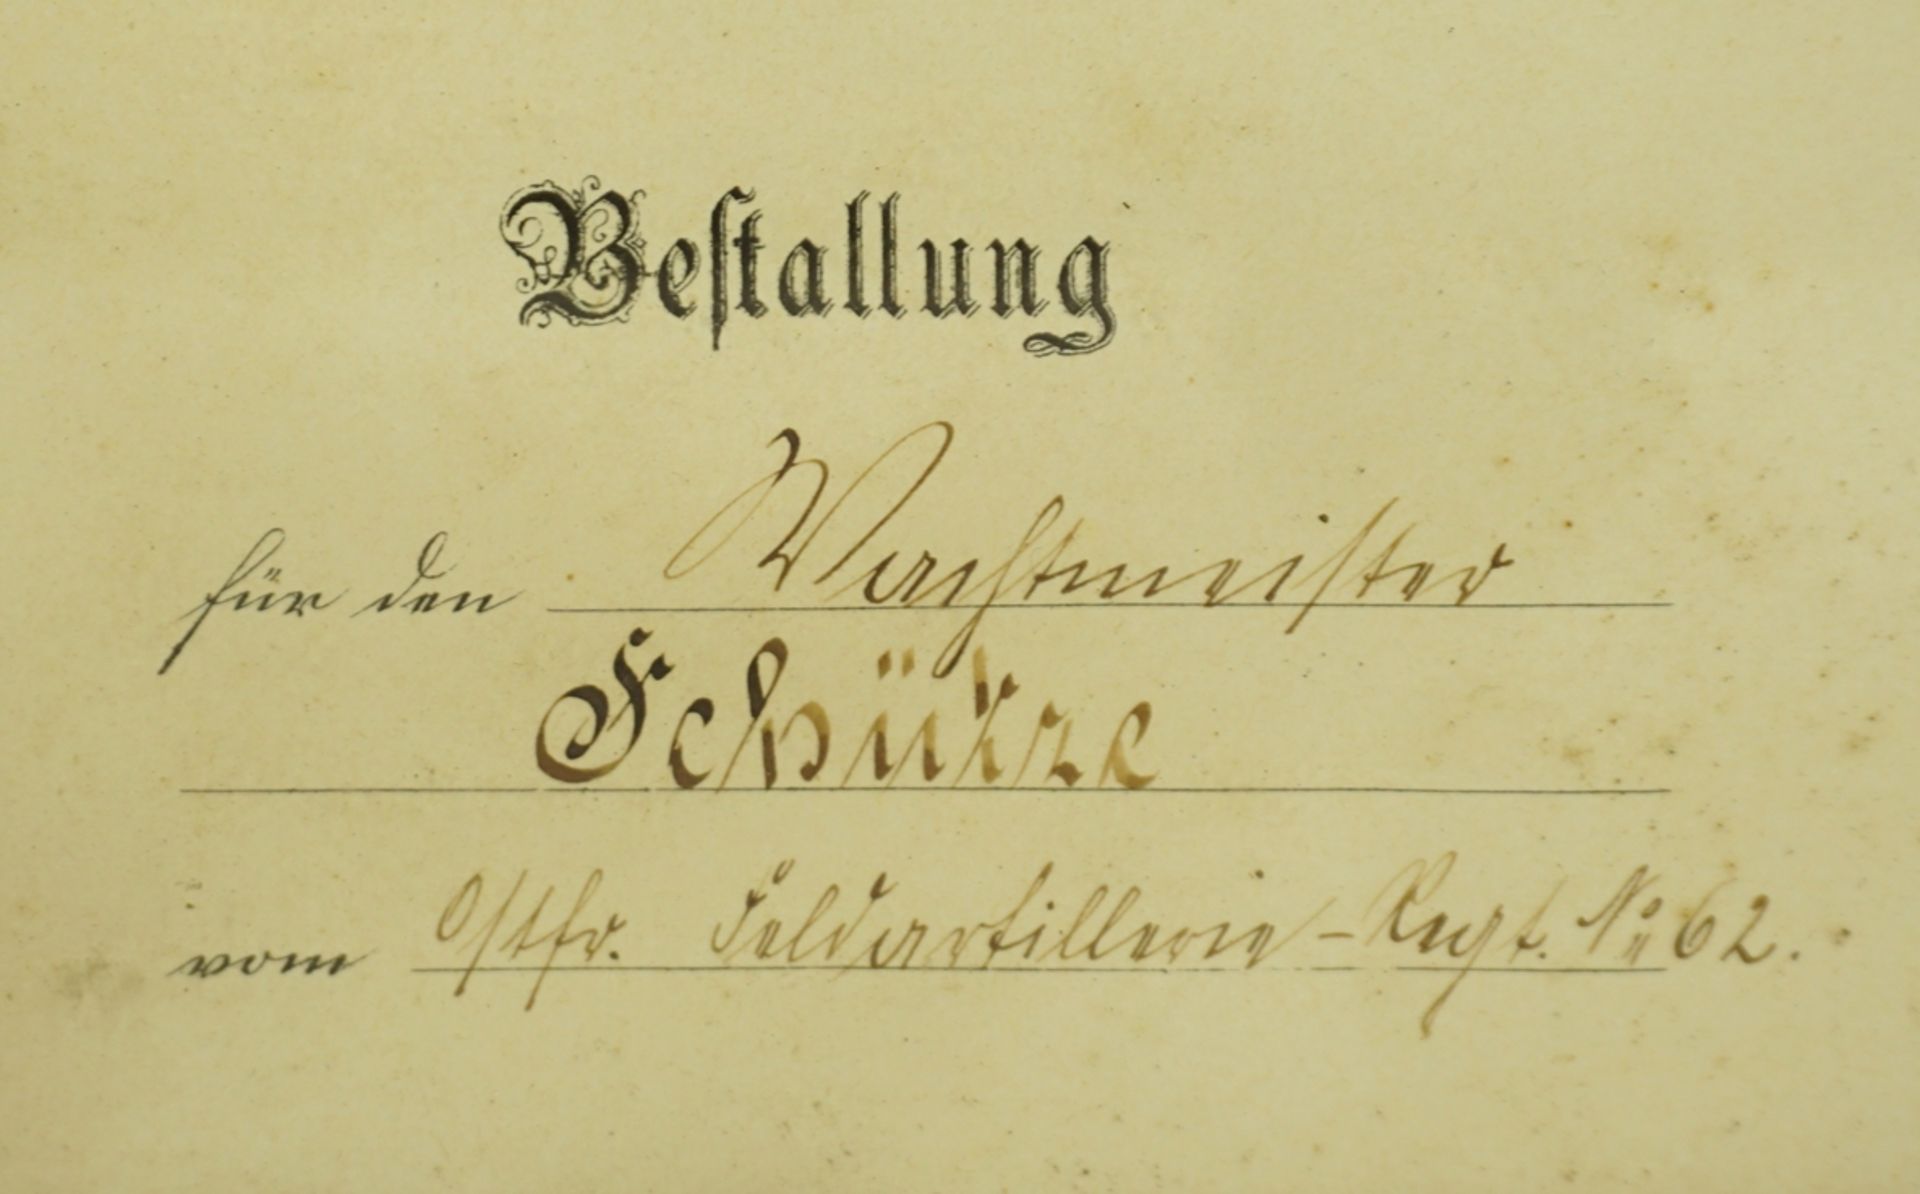 Bestallung
für den Wachtmeister
Schütze
vom Ostfr. Feldartillerie-Regt. No 62.